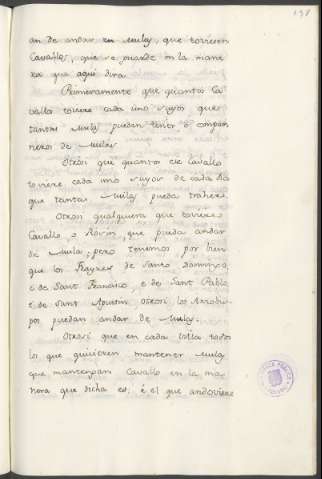 138
an de andar en Mulas, que toviesen
Cavallos, que se guarde en la mane
ra que aqui dira.
Primeramente que quantos Ca
vallos toviere cada uno suyos que
tantas Mulas pueden tener, o compan
neros de Mulas
Otrosi que quantos ese Cavallo
toviere cada uno suyos de cada dia
que tantas Mulas pueda traher.
Otrosi qualquiera que toviere
Cavallo, o Rocin, que pueda andar
de Mula; pero tenemos por bien
que los Frayres de Santo Domingo,
e de Sant Francisco, e de Sant Pablo,
e de Sant Agustin, otrosi los Arzobis
pos puedan andar de Mulas.
Otrosi que en cada Villa todos
los que quisieren mantener Mulas
que mantengan Cavallo en la ma
nera que dicha es; é el que andoviere